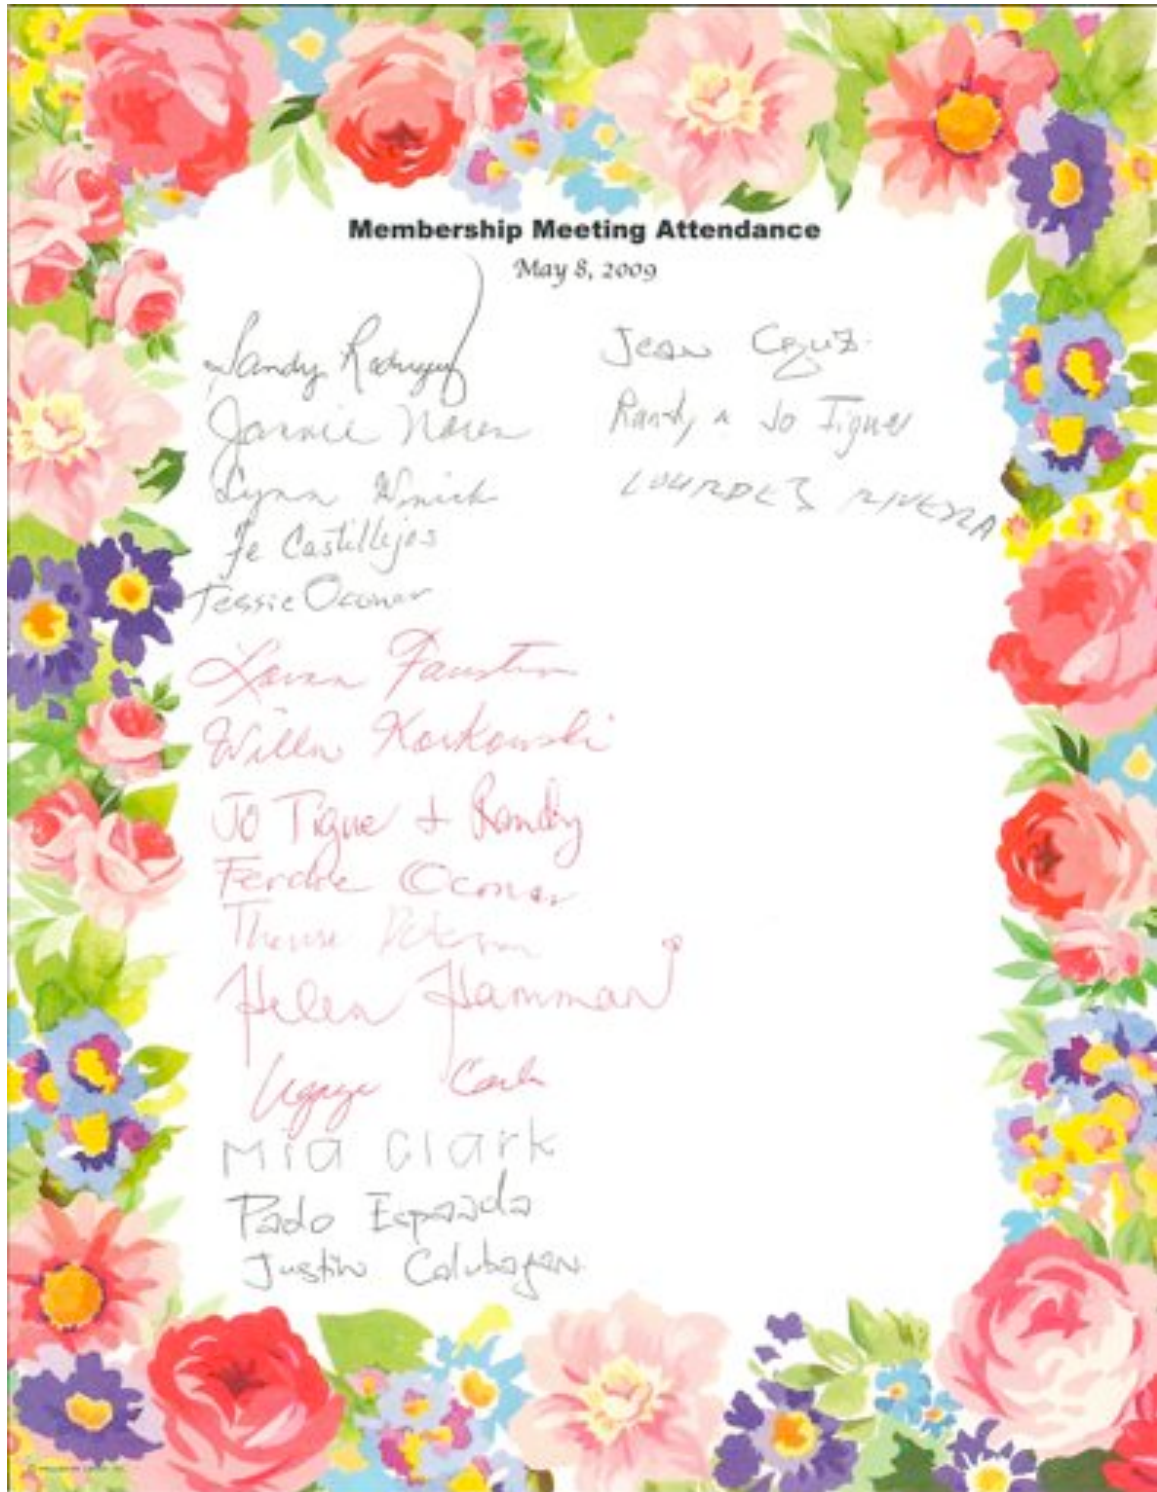 Membership Meeting Attendance
May 8, 2009
Sandy Rodriguez
Jannie
Lynn
Fe Castillejos
Tessie Oconer
Faustin
Willa Korkowski
Jo Tigue + Randy
Ferdie Oconer
Therese Peterson
Helen Hamman
Mia Clark
Pado Espaada
Justin Calubayan
Jean Cruz
Randy & Jo Tigue
LOURDES RIVERA